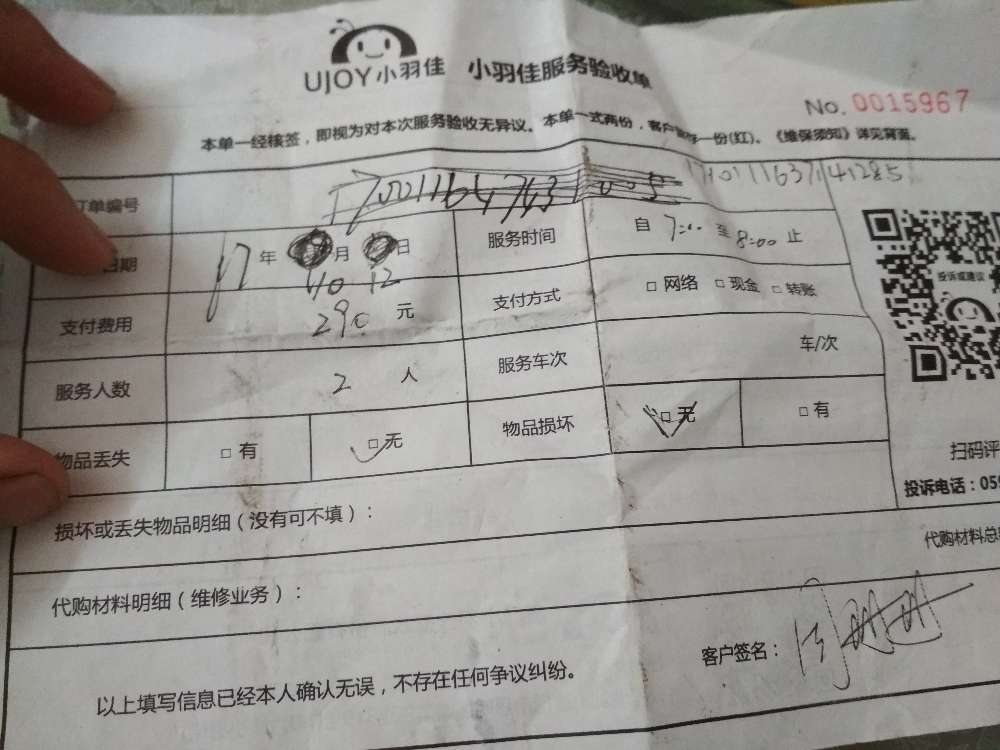 UJOY小羽佳 小羽佳服务验收单
No. 0015967
本单一经核签，即视为对本次服务验收无异议。本单一式两份，客户 一份(红)。《维保须知》详见背面。
订单编号 1710111637141285
日期 17年 月 日 服务时间 自 7:00 至 8:00 止
10 12
支付费用 290 元 支付方式 □ 网络 □ 现金 □ 转账
投诉或建议
服务人数 2 人 服务车次 车/次
物品丢失 □ 有 □ 无 物品损坏 □ 无 □ 有
扫码评
投诉电话：059
损坏或丢失物品明细（没有可不填）：
代购材料总
代购材料明细（维修业务）：
客户签名：
以上填写信息已经本人确认无误，不存在任何争议纠纷。